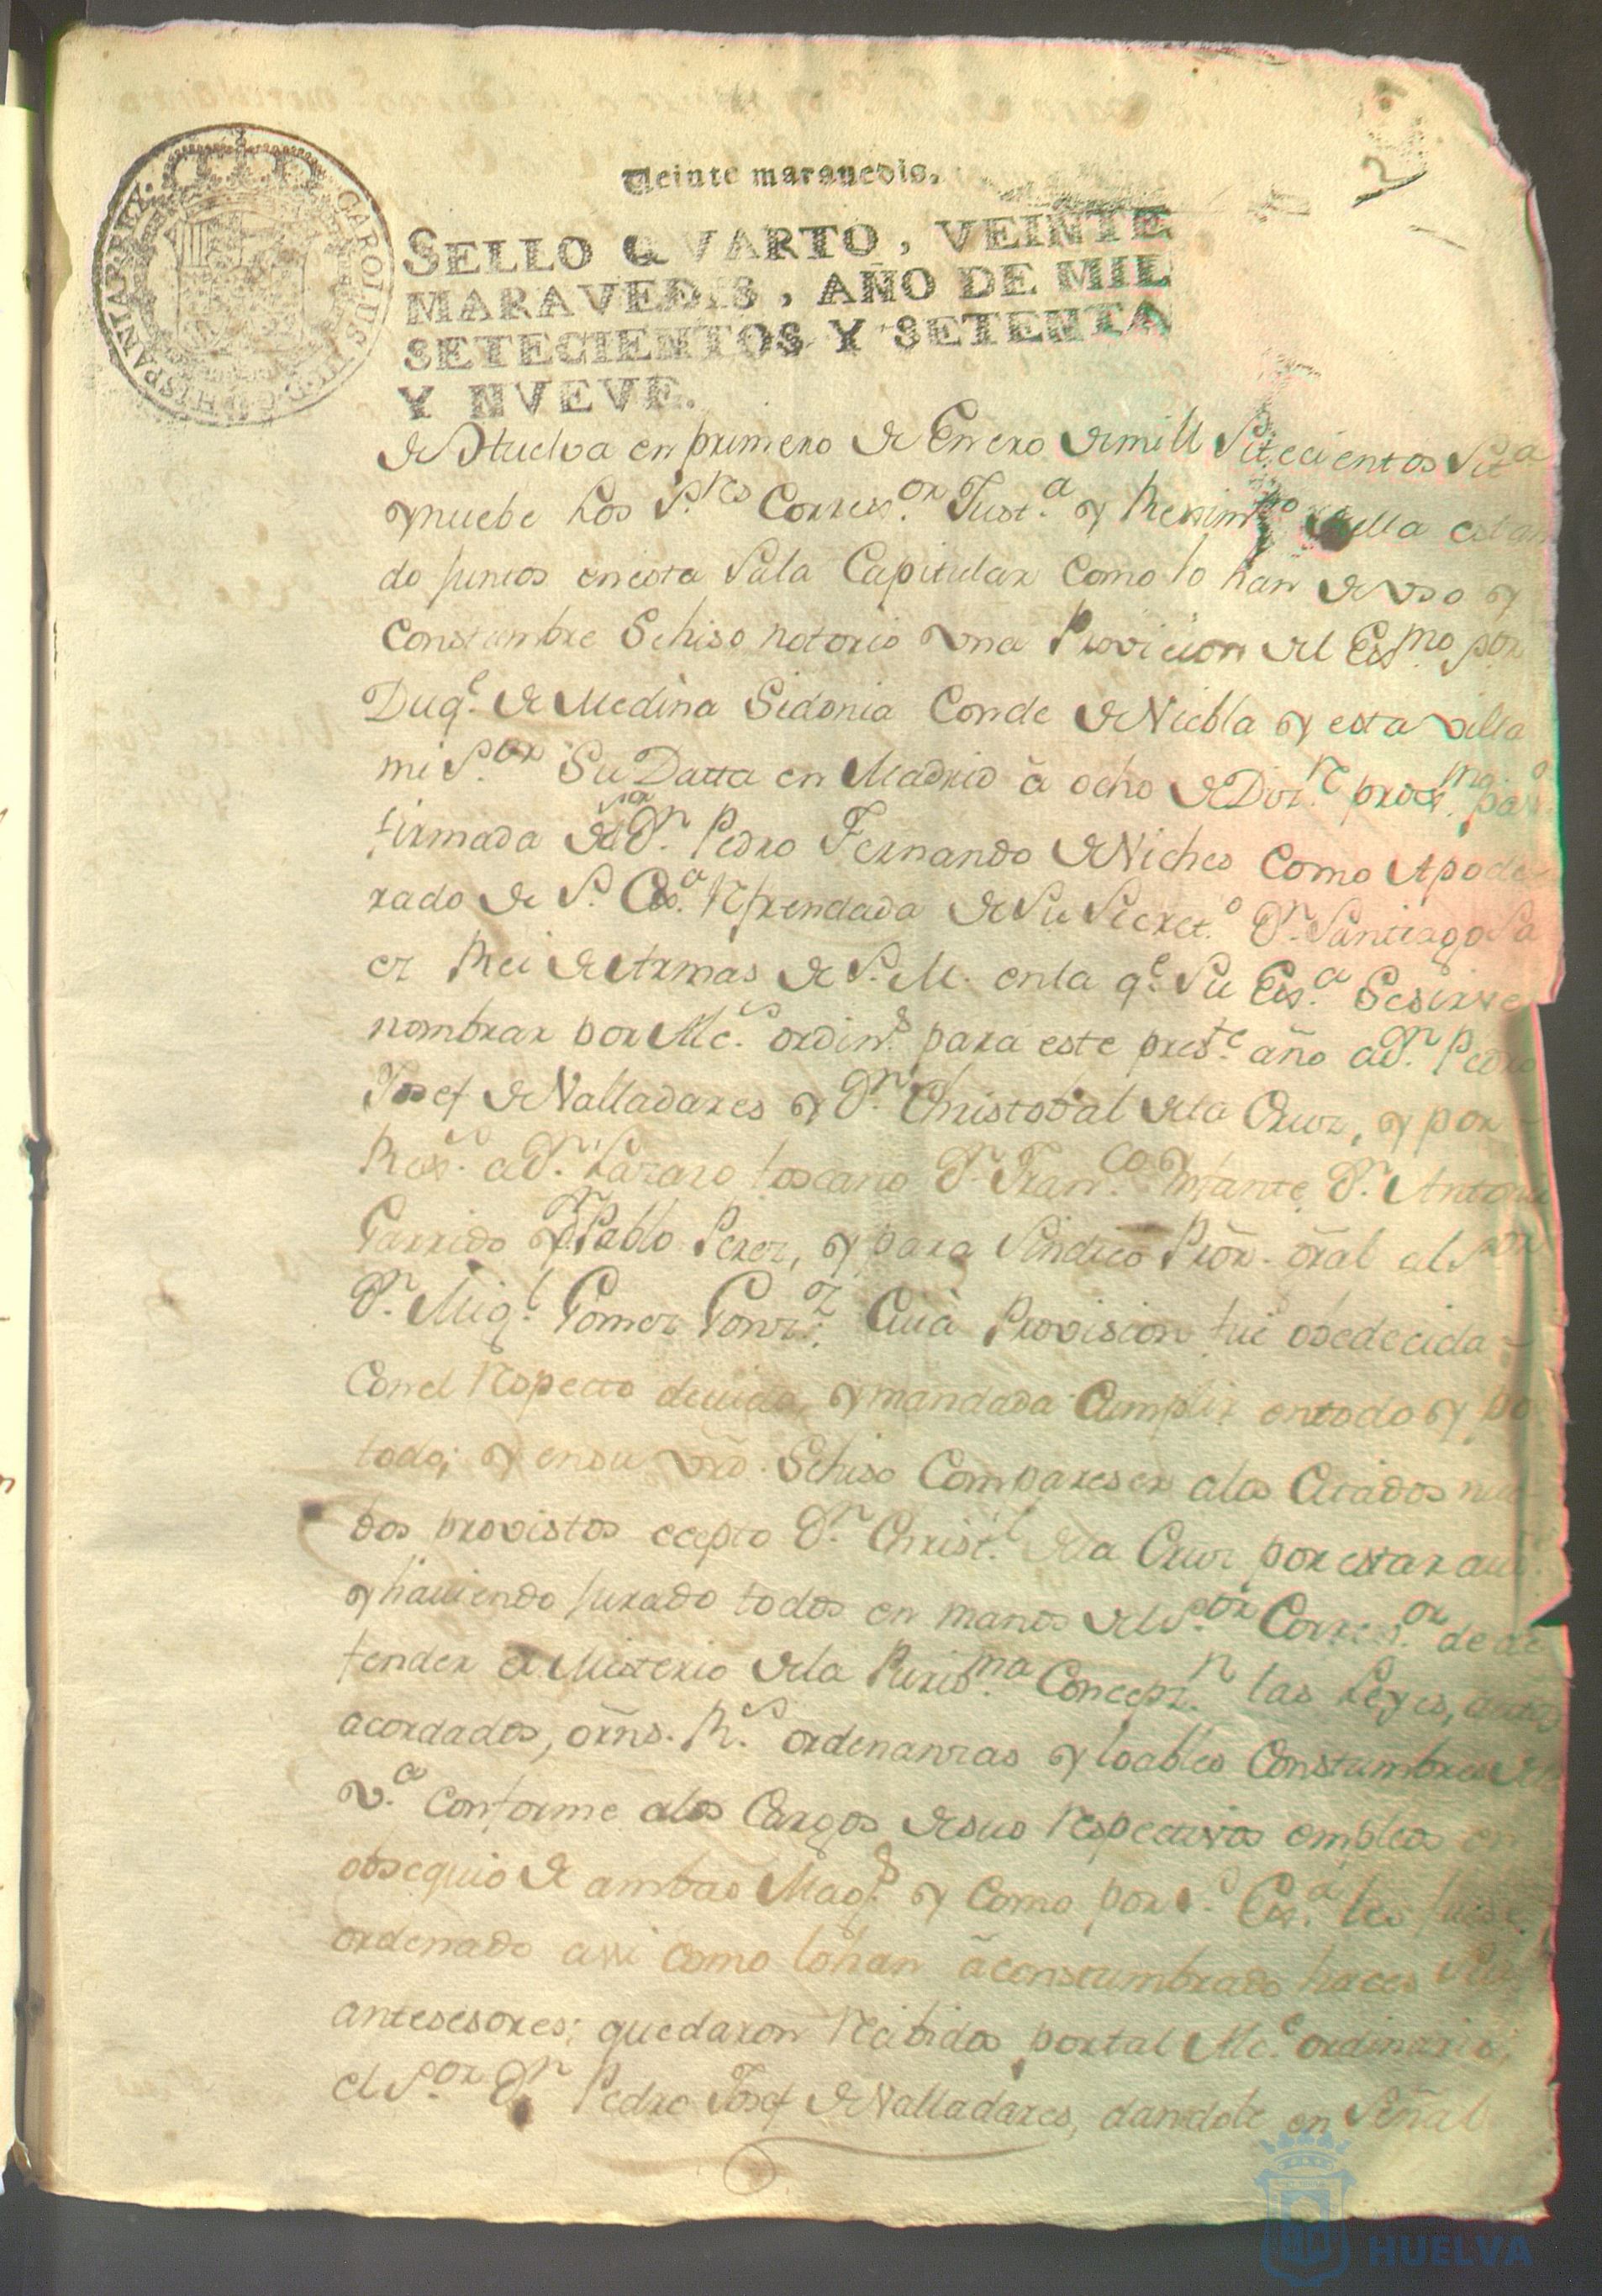 Veinte maravedis.
2
SELLO QVARTO, VEINTE
MARAVEDIS, AÑO DE MIL
SETECIENTOS Y SETENTA
Y NVEVE.
CAROLUS III D G HISPANIAR REX
de Huelva en primero de Enero de mill Setecientos Set.a
y nuebe Los S.res Corres.or Just.a y Reximto della estan
do juntos en esta Sala Capitular como lo han de vso y
constumbre Sehiso notorio vna Provicion del Exmo por
Duq.e de Medina Sidonia Conde de Niebla y esta villa
mi S.or Su Datta en Madrid à ocho de Diz.re proxmo pas.o
firmada del Sor Dn. Pedro Fernando de Niches como Apode
rado de S. Ex.a Refrendada de Su Secret.o Dn. Santiago Sa
ez Rei de Armas de S. M. en la q.e Su Ex.a Sesirve
nombrar por Alc.s ordin.s para este pres.te año a Dn. Pedro
Josef de Valladares y Dn. Christobal de la Cruz, y por
Rex.s a Dn. Lazaro toscano Dn. Fran.co Infante Dn. Antonio
Garrido y Dn. Pablo Perez, y para Sindico Pror. gral el S.or
Dn. Mig.l Gomez Gonz.z Cuia Provision fue obedecida
Con el Respecto devido, y mandada Cumplir entodo y por
todo; y en su vrd. Sehiso Compareser alos Citados nue
bos provistos ecepto Dn. Christ.l dela Cruz por estar aus.e
y haviendo jurado todos en manos del S.or Corres.or de de
fender el Misterio dela Puris.ma Concepz.n las Leyes, autos
acordados, orns. R.s ordenanzas y loables Constumbres de
v.a conforme alos Cargos de sus Respectivos empleos en
obsequio de ambas Mag.s y como por S. Ex.a les fuese
ordenado assi como lohan àconstumbrado haces Sus
antesesores; quedaron Recibidos por tal Alc.e ordinario,
el S.or Dn. Pedro Josef de Valladares, dandole en Señal
HUELVA